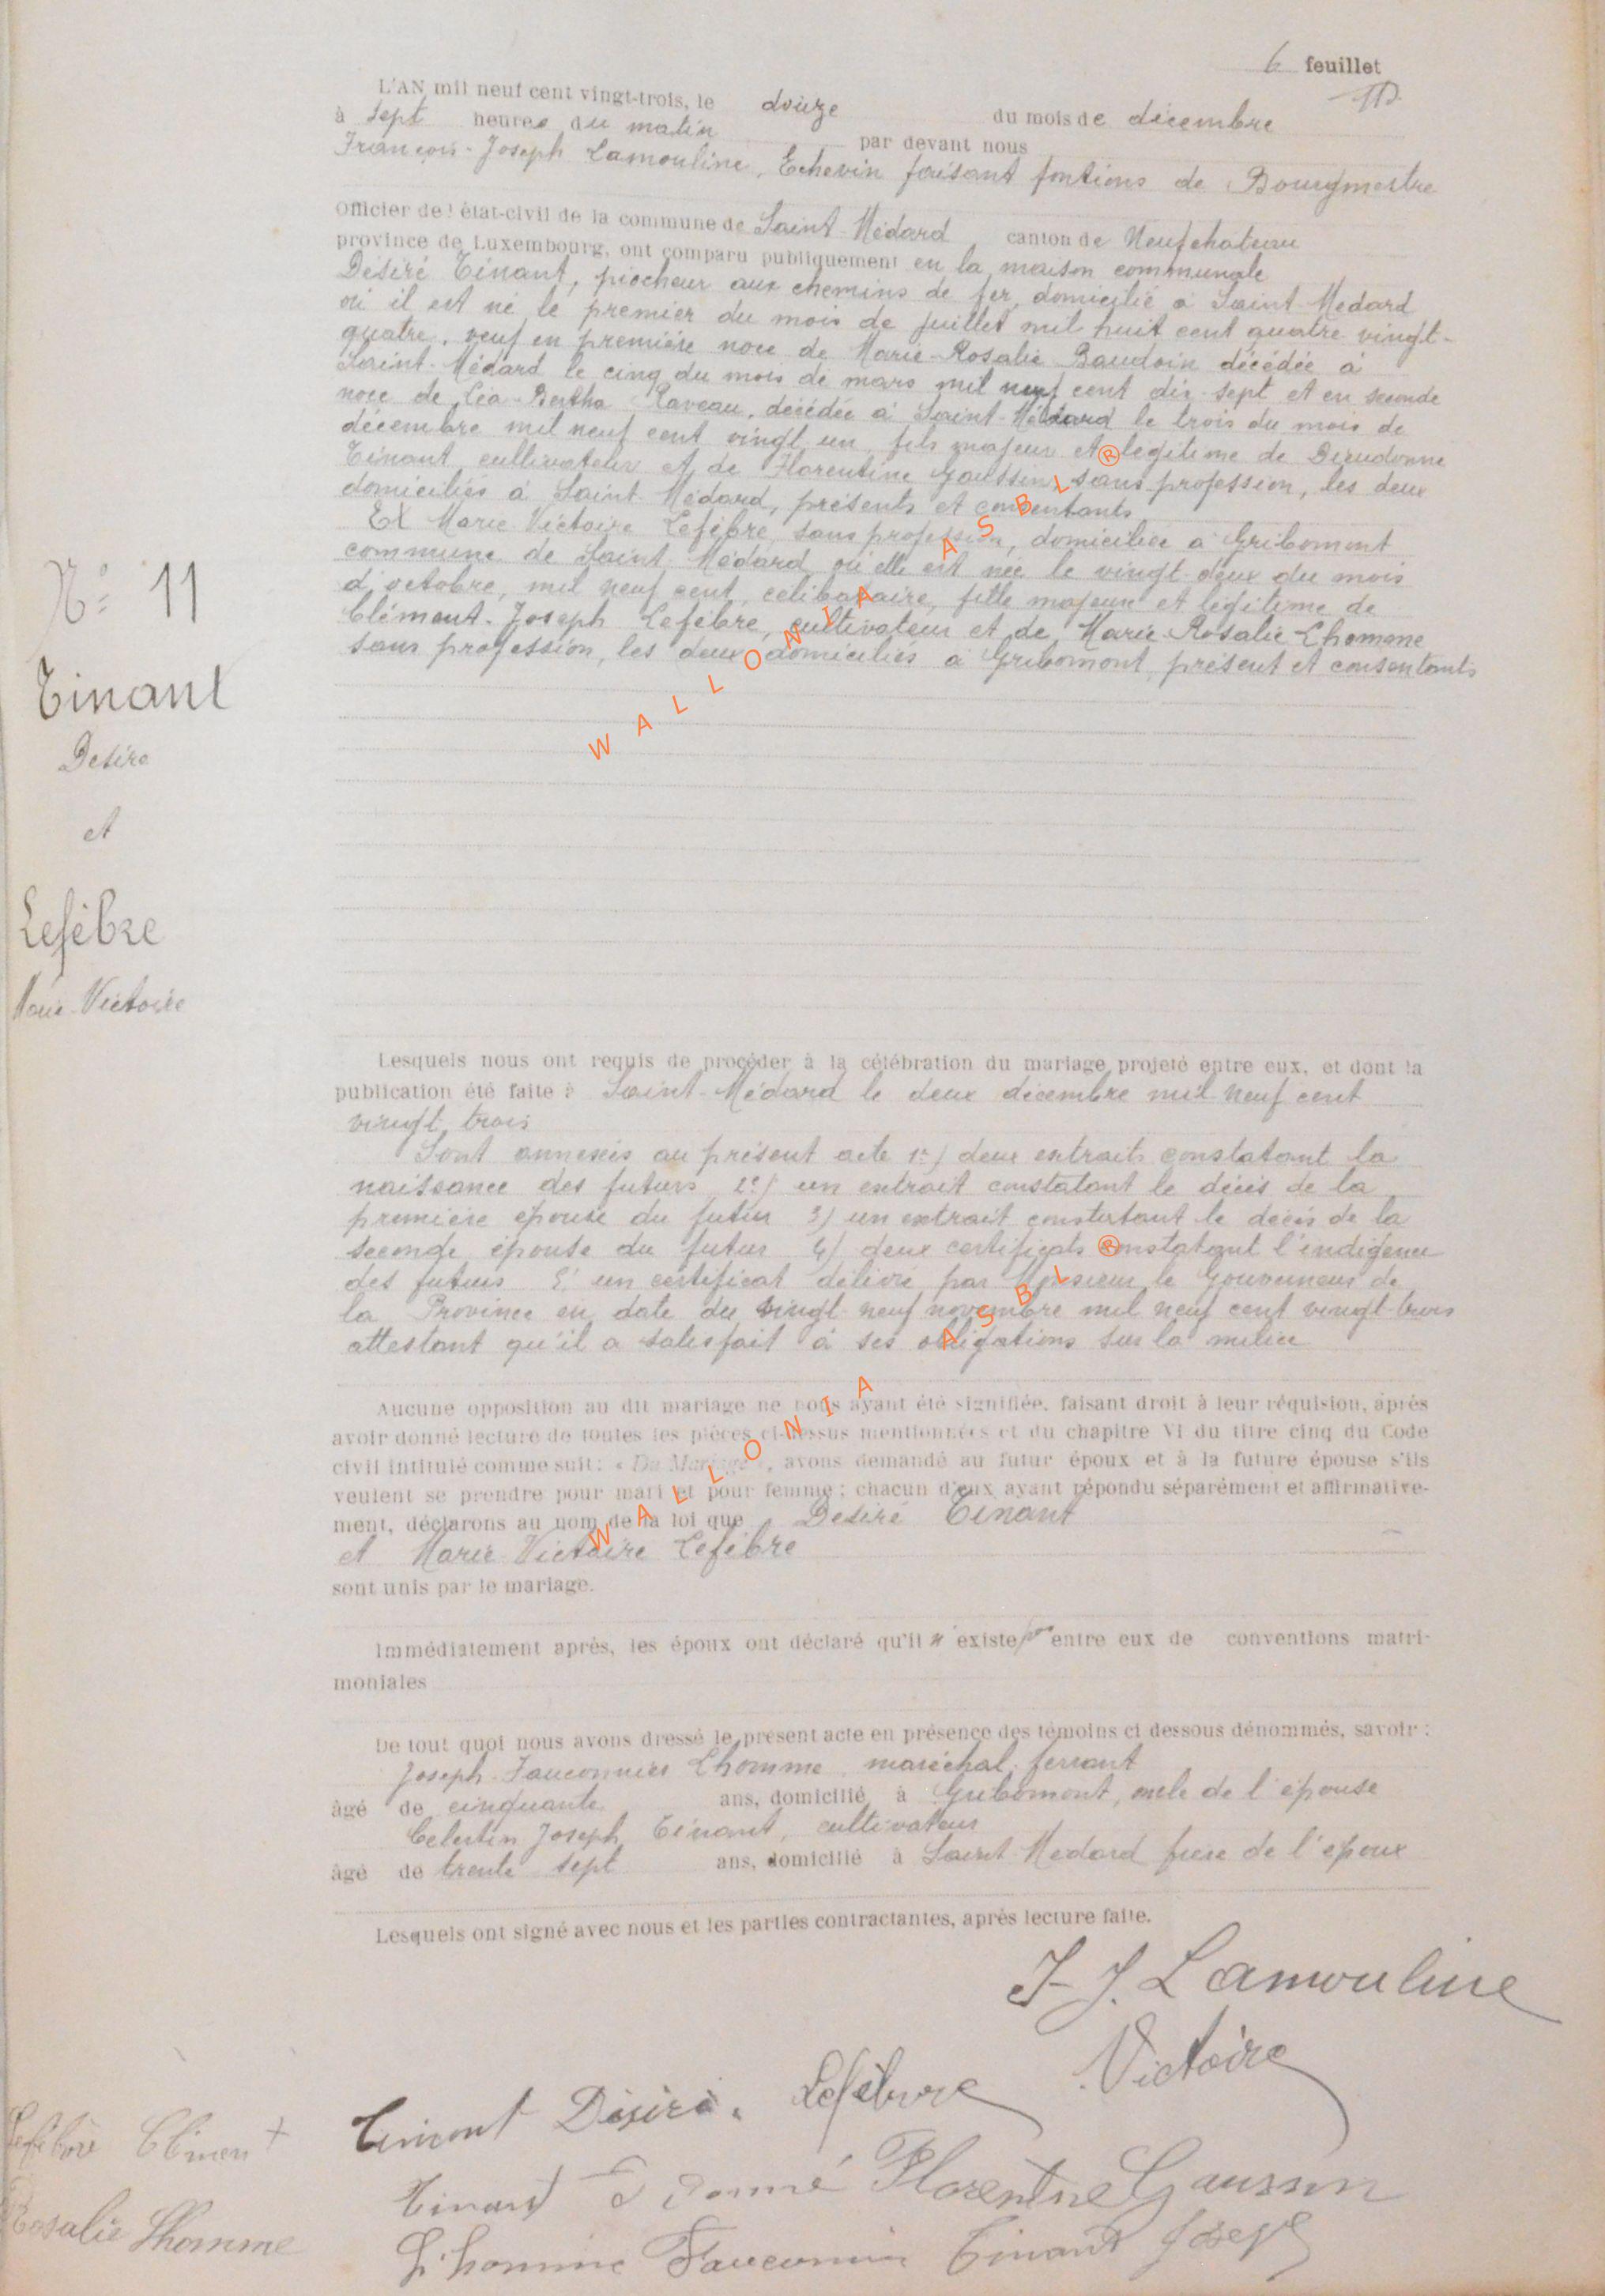 6 feuillet
L'AN mil neuf cent vingt-trois, le douze du mois de décembre
à sept heures du matin par devant nous
François-Joseph Lamouline, Echevin faisant fontions de Bourgmestre
Officier de l'état-civil de la commune de Saint-Médard canton de Neufchateau
province de Luxembourg, ont comparu publiquement en la maison communale
Désiré Tinant, piocheur aux chemins de fer, domicilié à Saint-Médard
où il est né le premier du mois de juillet mil huit cent quatre vingt-
quatre, veuf en première noce de Marie-Rosalie Baudoin décédée à
Saint-Médard le cinq du mois de mars mil neuf cent dix-sept et en seconde
noce de Léa-Bertha Raveau, décédée à Saint-Médard le trois du mois de
décembre mil neuf cent vingt un, fils majeur et légitime de Dieudonné
Tinant cultivateur et de Florentine Gaussin sans profession, les deux
domiciliés à Saint-Médard, présents et consentants
Et Marie Victoire Lefèbre, sans profession, domiciliée à Gribomont
commune de Saint-Médard où elle est née le vingt-deux du mois
d'octobre, mil neuf cent, célibataire, fille majeure et légitime de
Clément-Joseph Lefèbre, cultivateur et de Marie-Rosalie Lhomme
sans profession, les deux domiciliés à Gribomont, présent et consentants
N° 11
Tinant
Désiré
et
Lefèbre
Marie-Victoire
WALLONIA ASBL ®
Lesquels nous ont requis de procéder à la célébration du mariage projeté entre eux, et dont la
publication été faite à Saint-Médard le deux décembre mil neuf cent
vingt trois
Sont annexés au présent acte 1°) deux extraits constatant la
naissance des futurs 2°) un extrait constatant le décès de la
première épouse du futur 3) un extrait constatant le décès de la
seconde épouse du futur 4) deux certificats constatant l'indigence
des futurs 5° un certificat délivré par Monsieur le Gouverneur de
la Province en date du vingt-neuf novembre mil neuf cent vingt-trois
attestant qu'il a satisfait à ses obligations sur la milice
Aucune opposition au dit mariage ne nous ayant été signifiée, faisant droit à leur réquisition, après
avoir donné lecture de toutes les pièces ci-dessus mentionnées et du chapitre VI du titre cinq du Code
civil intitulé comme suit: « Du Mariage », avons demandé au futur époux et à la future épouse s'ils
veulent se prendre pour mari et pour femme; chacun d'eux ayant répondu séparément et affirmative-
ment, déclarons au nom de la loi que Désiré Tinant
et Marie Victoire Lefèbre
sont unis par le mariage.
WALLONIA ASBL ®
Immédiatement après, les époux ont déclaré qu'il n'existe pas entre eux de conventions matri-
moniales
De tout quoi nous avons dressé le présent acte en présence des témoins ci dessous dénommés, savoir:
Joseph-Fauconnier Lhomme maréchal ferrant
âgé de cinquante ans, domicilié à Gribomont, oncle de l'épouse
Celestin Joseph Tinant, cultivateur
âgé de trente sept ans, domicilié à Saint-Médard frère de l'époux
Lesquels ont signé avec nous et les parties contractantes, après lecture faite.
F-J. Lamouline
Tinant Désiré. Lefebvre Victoire
Lefebvre Clément +
Tinant Florentine Gaussin
Rosalie Lhomme
Lhomme Tinant Joseph